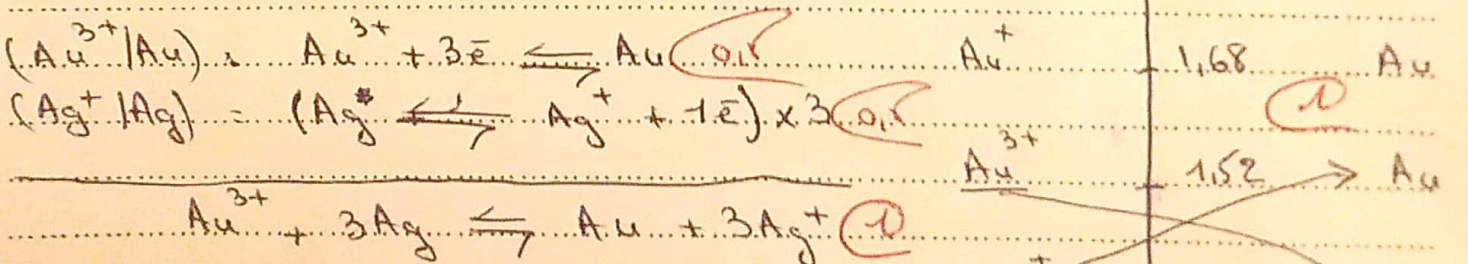 (Au³⁺/Au) : Au³⁺ + 3ē ⇌ Au 0,5
(Ag⁺/Ag) = (Ag ⇌ Ag⁺ + 1ē) x 3 0,5
Au³⁺ + 3Ag ⇌ Au + 3Ag⁺ 1
Au⁺ 1,68 Au
1
Au³⁺ 1,52 Au